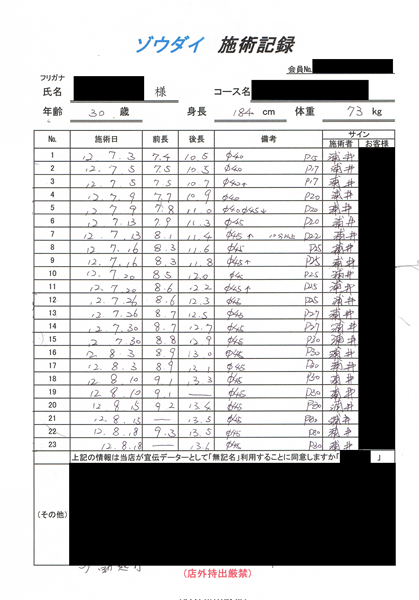 ゾウダイ 施術記録
会員No.
フリガナ
氏名 様 コース名
年齢 30 歳 身長 184 cm 体重 73 kg
No. 施術日 前長 後長 備考 サイン
施術者 お客様
1 12.7.3 7.4 10.5 φ40 P15
2 12.7.5 7.5 10.5 φ40 P17
3 12.7.5 7.5 10.7 φ40↑ P17
4 12.7.9 7.7 10.9 φ40 P20
5 12.7.9 7.8 11.0 φ40φ45↓ P20
6 12.7.13 7.9 11.3 φ45 P20
7 12.7.13 8.1 11.4 φ45↑ P22
8 12.7.16 8.3 11.6 φ45 P25
9 12.7.16 8.3 11.8 φ45↑ P25
10 12.7.20 8.5 12.0 φ45 P25
11 12.7.20 8.6 12.2 φ45↑ P25
12 12.7.26 8.6 12.3 φ45 P25
13 12.7.26 8.7 12.5 φ45 P27
14 12.7.30 8.7 12.7 φ45 P27
15 12.7.30 8.8 12.9 φ45 P30
16 12.8.3 8.9 13.0 φ45 P30
17 12.8.3 8.9 13.1 φ45 P30
18 12.8.10 9.1 13.3 φ45 P30
19 12.8.10 9.1 — φ45 P30
20 12.8.15 9.2 13.4 φ45 P30
21 12.8.15 — 13.5 φ45 P30
22 12.8.18 9.3 13.5 φ45 P30
23 12.8.18 — 13.6 φ45 P30
上記の情報は当店が宣伝データーとして「無記名」利用することに同意しますか「 」
(その他)
(店外持出厳禁)